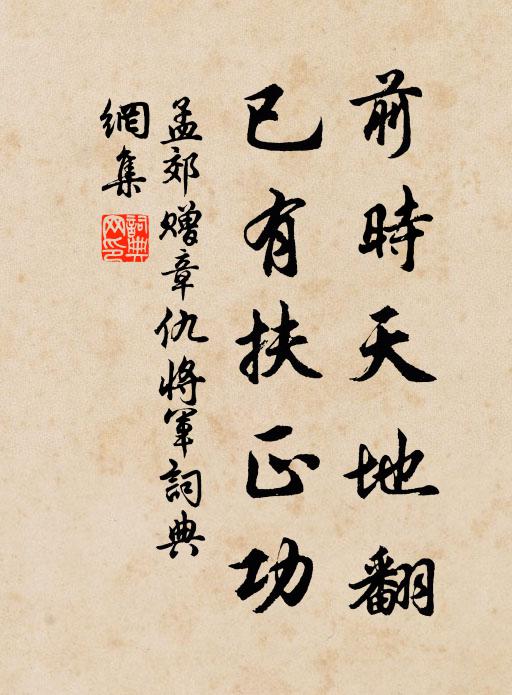 前時天地翻
已有扶正功
孟郊贈章仇將軍詞典
網集
詞典
网印